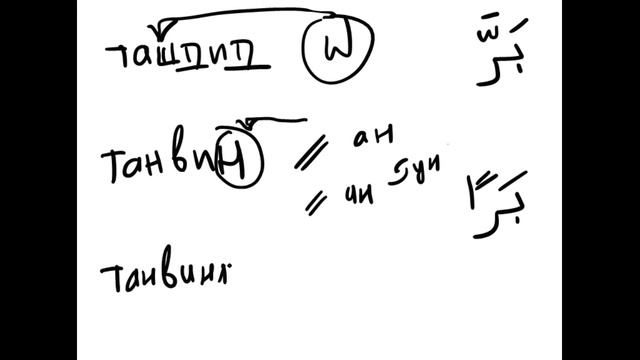 ташдид ّ بَرَّ
танвин ً ан ٌ ун ٍ ин بَرًا
танвин